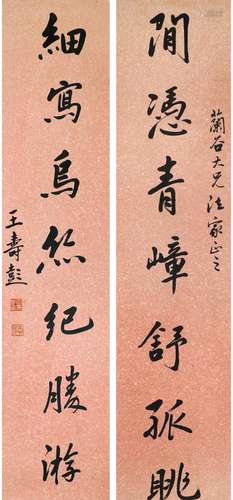 蘭谷大兄法家正之
閒憑青嶂舒孤眺
細寫烏絲紀勝游
王壽彭